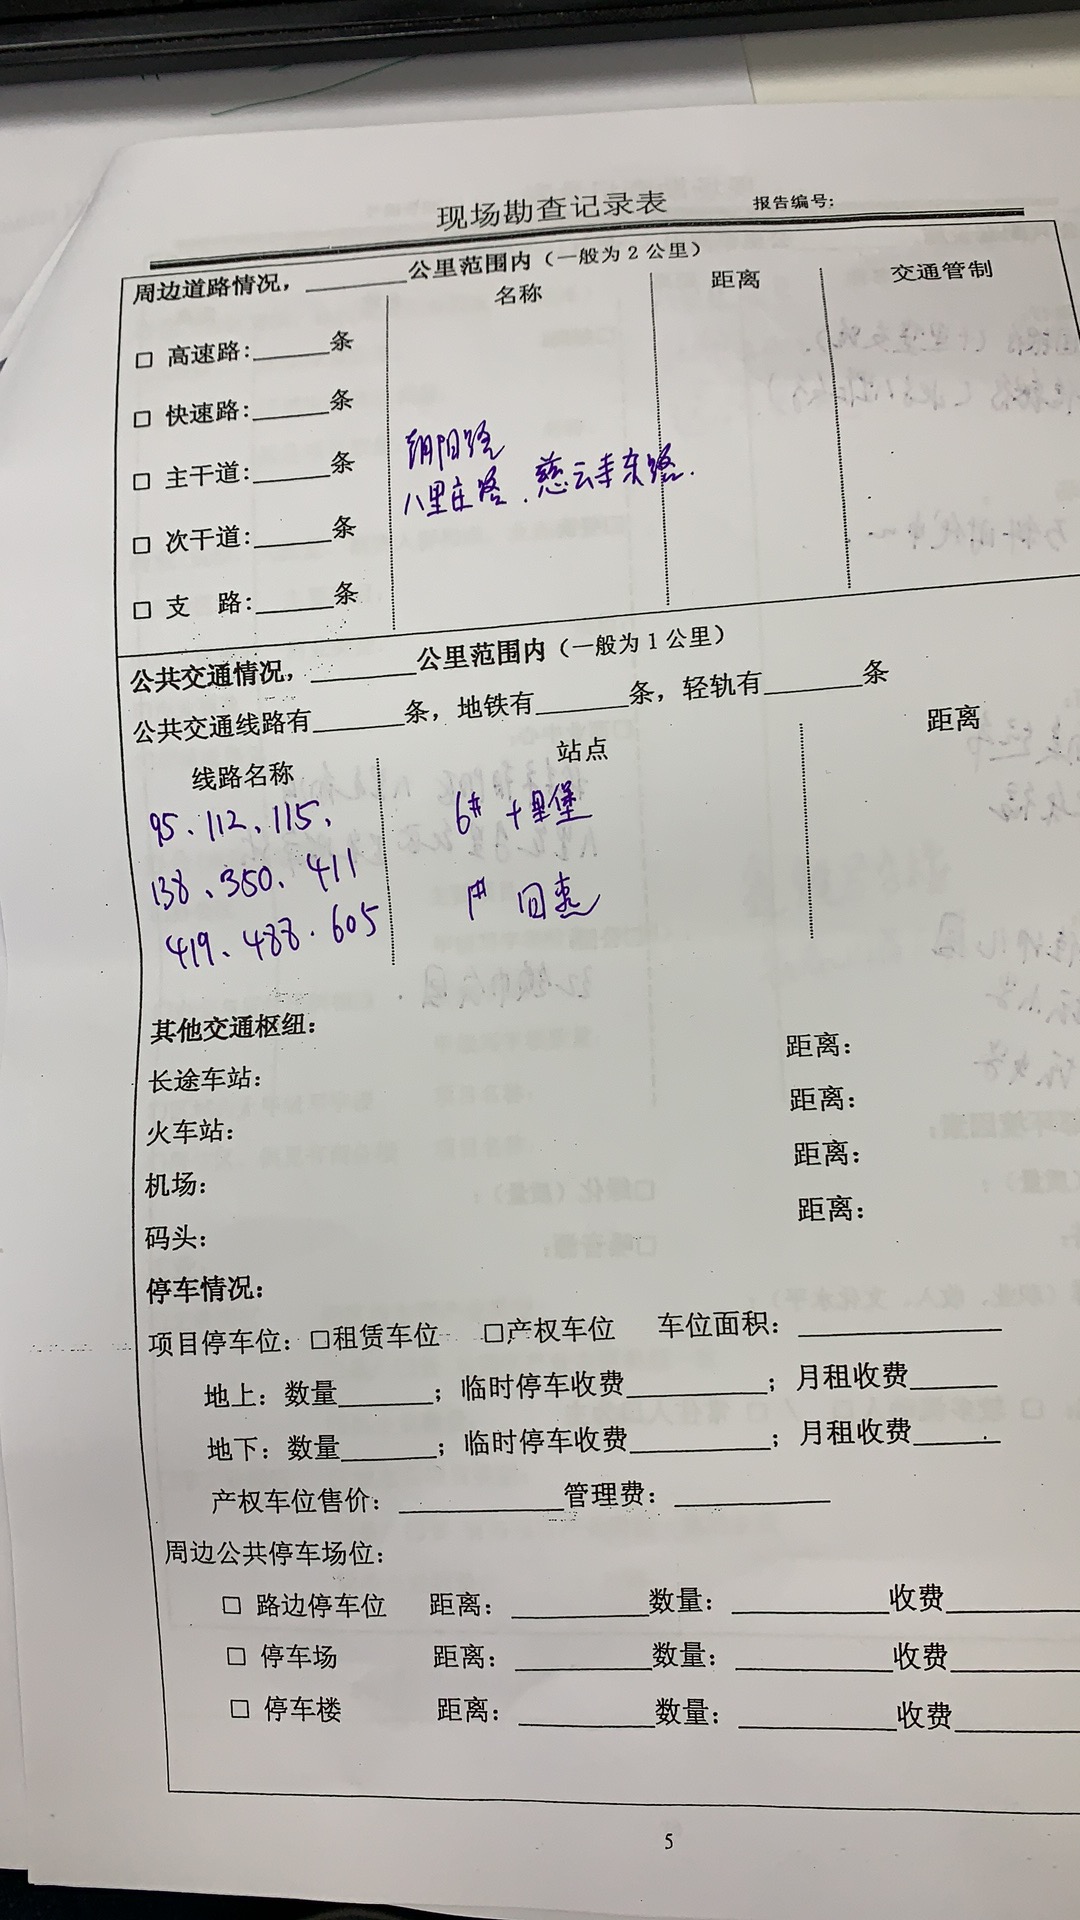 现场勘查记录表 报告编号:
周边道路情况，______公里范围内（一般为2公里）
名称 距离 交通管制
□ 高速路:______条
□ 快速路:______条
□ 主干道:______条 朝阳路
八里庄路、慈云寺东路.
□ 次干道:______条
□ 支 路:______条
公共交通情况，______公里范围内（一般为1公里）
公共交通线路有______条，地铁有______条，轻轨有______条
线路名称 站点 距离
95、112、115、 6# 十里堡
138、350、411
419、488、605
其他交通枢纽：
长途车站： 距离：
火车站： 距离：
机场： 距离：
码头： 距离：
停车情况：
项目停车位：□租赁车位 □产权车位 车位面积：______
地上：数量______；临时停车收费______；月租收费______
地下：数量______；临时停车收费______；月租收费______
产权车位售价：______管理费：______
周边公共停车场位：
□ 路边停车位 距离：______数量：______收费______
□ 停车场 距离：______数量：______收费______
□ 停车楼 距离：______数量：______收费______
5